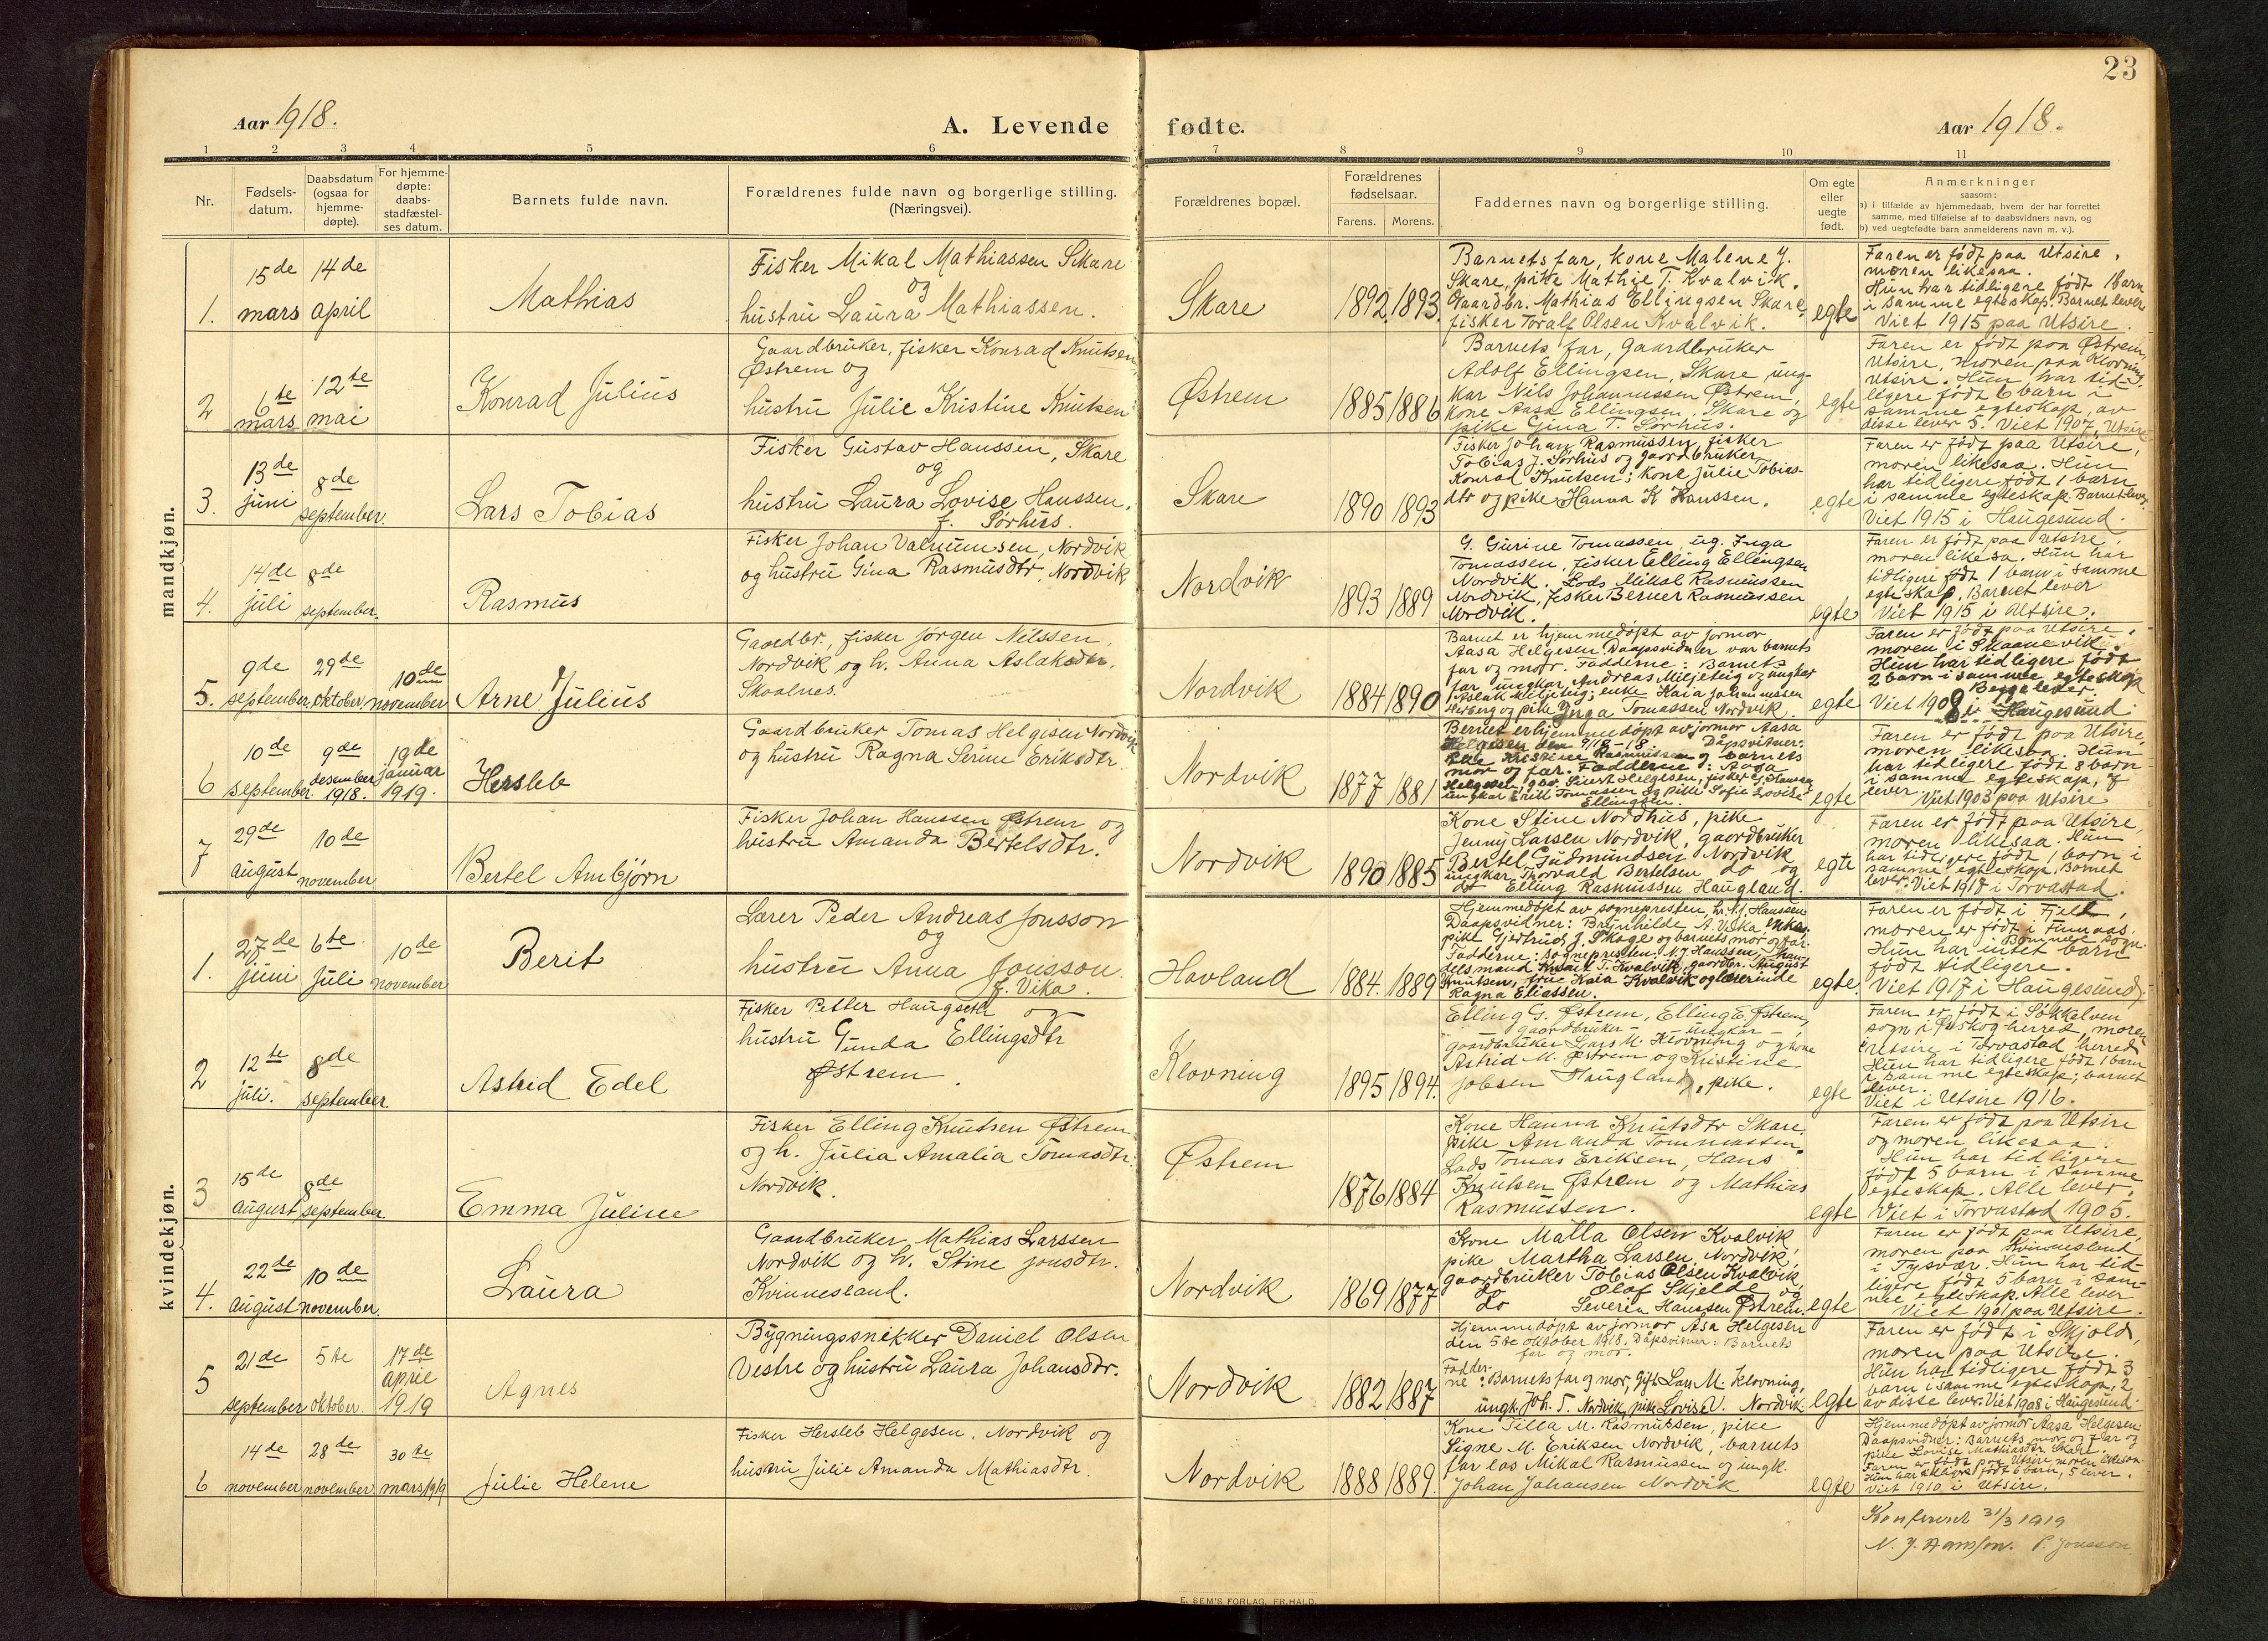 23
Aar 1918.
A. Levende fødte.
Aar 1918.
1 2 3 4 5 6 7 8 9 10 11
Nr.
Fødsels-
datum.
Daabsdatum
(ogsaa for
hjemme-
døpte).
For hjemme-
døpte:
daabs-
stadfæstel-
ses datum.
Barnets fulde navn.
Forældrenes fulde navn og borgerlige stilling.
(Næringsvei).
Forældrenes bopæl.
Forældrenes
fødselsaar.
Farens. Morens.
Faddernes navn og borgerlige stilling.
Om egte
eller
uegte
født.
Anmerkninger
saasom:
a) i tilfælde av hjemmedaab, hvem der har forrettet
samme, med tilføielse af to daabsvidners navn, og
b) ved uegtefødte barn anmelderens navn m. v.).
mandkjøn.
1.
15de
mars
14de
april
Mathias
Fisker Mikal Mathiassen Skare
og
hustru Laura Mathiassen.
Skare
1892. 1893.
Barnets far, kone Malene J.
Skare, pike Mathie T. Kvalvik.
Gaardbr. Mathias Ellingsen Skare,
fisker Toralf Olsen Kvalvik.
egte
Faren er født paa Utsire,
moren likesaa.
Hun har tidligere født 1 barn
i samme egteskap. Barnet lever
Viet 1915 paa Utsire.
2
6te
mars
12te
mai
Konrad Julius
Gaardbruker, fisker Konrad Knutsen
Østrem og
hustru Julie Kristine Knutsen
Østrem
1885 1886
Barnets far, gaardbruker
Adolf Ellingsen, Skare ung-
kar Nils Johannessen Østrem,
kone Aasa Ellingsen, Skare og
pike Gina T. Sørhus.
egte
Faren er født paa Østrem,
Utsire, moren paa Klovning
Utsire. Hun har tid-
ligere født 6 barn i
samme egteskap, av
disse lever 5. Viet 1907, Utsire
3.
13de
juni
8de
september.
Lars Tobias
Fisker Gustav Hanssen, Skare
og
hustru Laura Lovise Hanssen.
f. Sørhus.
Skare
1890 1893
Fisker Johan Rasmussen, fisker
Tobias J. Sørhus og gaardbruker
Konrad Knutsen; kone Julie Tobias-
dtr og pike Hanna K Hanssen.
egte
Faren er født paa Utsire,
moren likesaa. Hun
har tidligere født 1 barn
i samme egteskap. Barnet lever.
Viet 1915 i Haugesund.
4.
14de
juli
8de
september.
Rasmus
Fisker Johan Valnumsen, Nordvik
og hustru Gina Rasmusdtr, Nordvik
Nordvik
1893 1889
G. Gurine Tomassen, ug. Inga
Tomassen, fisker Elling Ellingsen
Nordvik. Lods Mikal Rasmussen
Nordvik, fisker Berner Rasmussen
Nordvik.
egte
Faren er født paa Utsire,
moren likesa. Hun har
tidligere født 1 barn i samme
egteskap. Barnet lever
Viet 1915 i Utsire.
5.
9de
september
29de
oktober
10de
november
Arne Julius
Gaardbr., fisker Jørgen Nilssen,
Nordvik og h. Anna Aslaksdtr.
Skaalnes.
Nordvik
1884 1890
Barnet er hjemmedøpt av jormor
Aasa Helgesen. Daapsvidner var barnets
far og mor. Fadderne: Barnets
far, ungkar Andreas Miljeteig og ungkar
Aslak Miljeteig; enke Kaia Johannessen
Herberg og pike Inga Tomassen Nordvik.
egte
Faren er født paa Utsire,
moren i Skaanevik.
Hun har tidligere født
2 barn i samme egteskap
Begge lever.
Viet 1908 i Haugesund
6
10de
september.
9de
desember
1918.
19de
januar
1919.
Hersleb
Gaardbruker Tomas Helgesen Nordvik
og hustru Ragna Serine Eriksdtr.
Nordvik
1877 1881
Barnet er hjemmedøpt av jormor Aasa
Helgesen den 9/12-18. Dåpsvitner:
Kristine Rasmussen og barnets
mor og far. Fadderne: Aasa
Helgesen, gbr. Sivert Helgesen, fisker Hanssen
ungkar Erik Tomassen og pike Sofie Lovise
Ellingsen.
egte
Faren er født paa Utsire,
moren likesaa. Hun
har tidligere født 8 barn
i samme egteskap, 7
lever
Viet 1903 paa Utsire
7
29de
august
10de
november
Bertel Ambjørn
Fisker Johan Hanssen Østrem og
hustru Amanda Bertelsdtr.
Nordvik
1890 1885
Kone Stine Nordhus, pike
Jenny Larsen Nordvik, gaardbruker
Bertel Gudmundsen Nordvik
ungkar Thorvald Bertelsen do og
do Elling Rasmussen Haugland.
egte
Faren er født paa Utsire,
moren likesaa. Hun
har tidligere født 1 barn i
samme egteskap, Barnet
lever. Viet 1917 i Torvastad.
kvindekjøn.
1.
27de
juni
6te
juli
10de
november
Berit
Lærer Peder Andreas Jonsson
og
hustru Anna Jonsson.
f. Vika.
Havland
1884. 1889
Hjemmedøpt av sognepresten, hr. N. J. Hanssen
Daapsvidner: Brynhilde A. Vika enke,
pike Gjertrud J. Skage og barnets mor og far.
Fadderne: sognepresten N. J. Hanssen, han-
delsmand Knut T. Kvalvik, gaardbr. August
Knutsen, frue Kaia Kvalvik og lærerinde
Ragna Eliassen.
egte.
Faren er født i Fjell,
moren er født i Finnaas.
Bømmel sogn.
Hun har intet barn
født tidligere.
Viet 1917 i Haugesund.
2
12te
juli.
8de
september.
Astrid Edel
Fisker Petter Haugseth og
hustru Gunda Ellingsdtr
Østrem.
Klovning
1895 1894.
Elling G. Østrem, Elling E. Østrem,
gaardbruker – ungkar –
gaardbruker Lars M. Klovning og kone
Astrid M. Østrem og Kristine
Jobsen Haugland, pike.
egte
Faren er født i Søkkelven
sogn i Ørskog herred, moren
i Utsire i Torvastad herred
Hun har tidligere født 1 barn
i samme egteskap; barnet
lever.
Viet i Utsire 1916.
3
15de
august
8de
september.
Emma Juline
Fisker Elling Knutsen Østrem
og h. Julia Amalia Tomasdtr.
Nordvik.
Østrem
1876 1884
Kone Hanna Knutsdtr Skare,
pike Amanda Tommassen
Lods Tomas Eriksen, Hans
Knutsen Østrem og Mathias
Rasmussen.
egte
Faren er født paa Utsire
og moren likesaa.
Hun har tidligere
født 5 barn i samme
egteskap. Alle lever.
Viet i Torvastad 1905.
4.
22de
august
10de
november.
Laura
Gaardbruker Mathias Larssen
Nordvik og h. Stine Jonsdtr.
Kvinnesland.
Nordvik
1869 1877
Kone Malla Olsen Kvalvik
pike Martha Larsen, Nordvik,
gaardbruker Tobias Olsen Kvalvik,
do Olaf Skjelde og
do Severin Hanssen Østrem.
egte
Faren er født paa Utsire,
moren paa Kvinnesland
i Tysvær. Hun har tid-
ligere født 5 barn i sam-
me egteskap. Alle lever
Viet 1901 paa Utsire.
5
21de
september
5te
oktober.
17de
april
1919
Agnes
Bygningssnikker Daniel Olsen
Vestre og hustru Laura Johansdtr.
Nordvik
1882 1887
Hjemmedøpt av jormor Asa Helgesen
den 5te oktober 1918. Dåpsvitner: Barnets
far og mor.
Fadder-
ne: Barnets far og mor, gift Lars M. Klovning,
ungk. Joh. T. Nordvik, pike Lovise V. Nordvik
egte
Faren er født i Skjold,
moren paa Utsire.
Hun har tidligere født 3
barn i samme egteskap, 2
av disse lever. Viet 1908 i Haugesund
6
14de
november
28de
november
30te
mars 1919
Julie Helene
Fisker Hersleb Helgesen, Nordvik og
hustru Julie Amanda Mathiasdtr.
Nordvik
1888 1889.
Kone Tilla M. Rasmussen, pike
Signe M. Eriksen Nordvik, barnets
far los Mikal Rasmussen og ungk.
Johan Johansen Nordvik
egte
Hjemmedøpt av jormor Aasa Helgesen.
Daapsvidner: Barnets mor og far og
pike Lovise Mathiasdtr Skare.
Faren er født paa Utsire, moren likesaa.
Hun har tidligere født 6 barn, 5 lever.
Viet 1910 i Utsire.
Konferert 31/3 1919
N. J. Hanssen. P. Jonsson.
E. SEM'S FORLAG, FR.HALD.